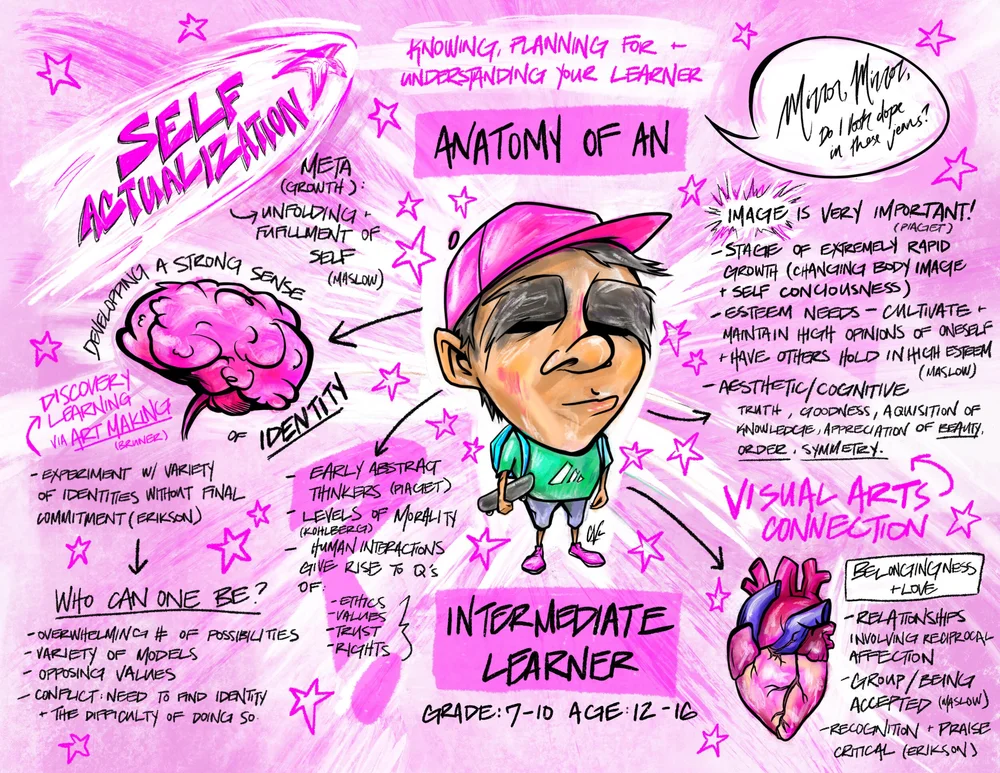 KNOWING, PLANNING FOR +
UNDERSTANDING YOUR LEARNER
ANATOMY OF AN
INTERMEDIATE
LEARNER
GRADE: 7-10 AGE: 12-16
SELF
ACTUALIZATION
META
(GROWTH):
UNFOLDING +
FUFILLMENT OF
SELF
(MASLOW)
DEVELOPPING A STRONG SENSE
OF IDENTITY
DISCOVERY
LEARNING
VIA ART MAKING
(BRUNER)
- EXPERIMENT W/ VARIETY
OF IDENTITIES WITHOUT FINAL
COMMITMENT (ERIKSON)
WHO CAN ONE BE?
- OVERWHELMING # OF POSSIBILITIES
- VARIETY OF MODELS
- OPPOSING VALUES
- CONFLICT: NEED TO FIND IDENTITY
+ THE DIFFICULTY OF DOING SO.
- EARLY ABSTRACT
THINKERS (PIAGET)
- LEVELS OF MORALITY
(KOHLBERG)
- HUMAN INTERACTIONS
GIVE RISE TO Q'S
OF:
- ETHICS
- VALUES
- TRUST
- RIGHTS
Mirror, Mirror,
Do I look dope
in these jeans?
IMAGE IS VERY IMPORTANT!
(PIAGET)
- STAGE OF EXTREMELY RAPID
GROWTH (CHANGING BODY IMAGE
+ SELF CONCIOUSNESS)
- ESTEEM NEEDS - CULTIVATE +
MAINTAIN HIGH OPINIONS OF ONESELF
+ HAVE OTHERS HOLD IN HIGH ESTEEM
(MASLOW)
- AESTHETIC/COGNITIVE
TRUTH, GOODNESS, AQUISITION OF
KNOWLEDGE, APPRECIATION OF BEAUTY,
ORDER, SYMMETRY.
VISUAL ARTS
CONNECTION
BELONGINGNESS
+ LOVE
- RELATIONSHIPS
INVOLVING RECIPROCAL
AFFECTION
- GROUP/BEING
ACCEPTED (MASLOW)
- RECOGNITION + PRAISE
CRITICAL (ERIKSON)